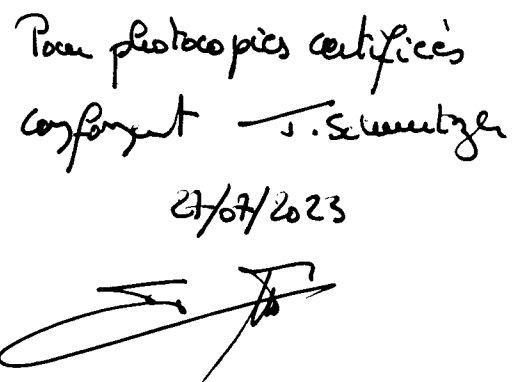 Pour photocopies certifiées
conforment J. Schmutzler
27/07/2023